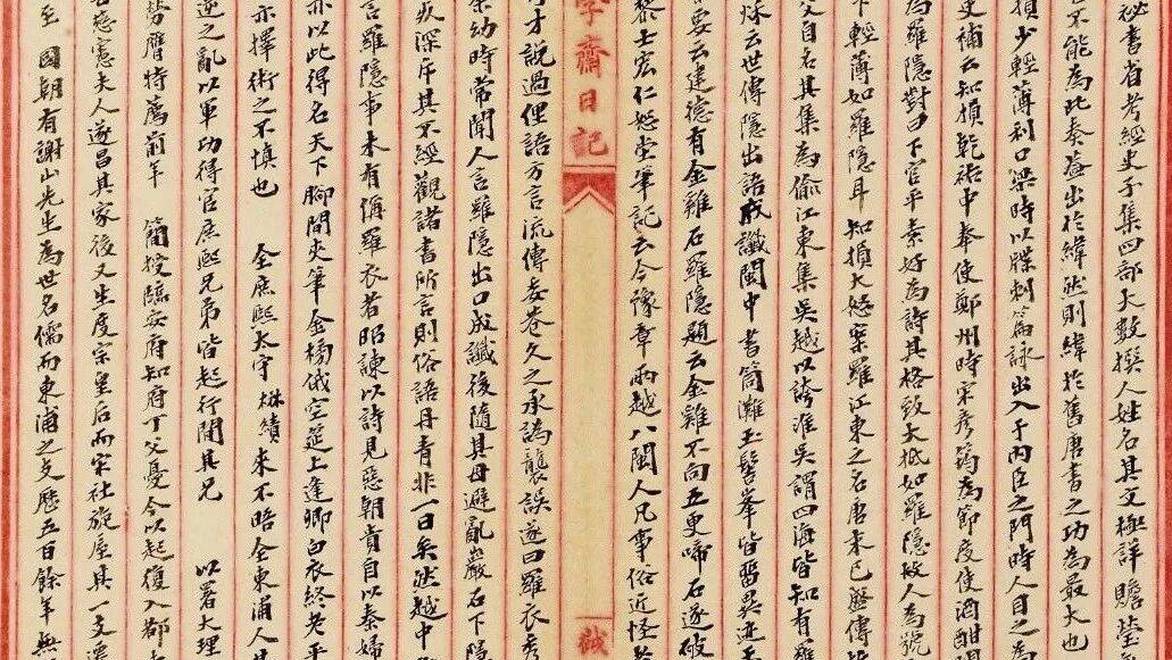 祕書省考經史子集四部大數撰人姓名其文極詳贍瑩
不能為此奏蓋出於緯然則緯於舊唐書之功為最大也
損少輕薄利口梁時以牒刺篇詠出入于內臣之門時人目之為
史補云知損乾祐中奉使鄭州時宋彥筠為節度使酒酣
為羅隱對曰下官平素好為詩其格致大抵如羅隱故人為號
下輕薄如羅隱耳知損大怒案羅江東之名唐末已盤傳
父自名其集為偷江東集吳越以誇淮吳謂四海皆知有羅
云世傳隱出語成讖閩中書筒灘玉髻峯皆留異迹
要云建德有金雞石羅隱題云金雞不向五更啼石遂破
黎士宏仁恕堂筆記云今豫章兩越八閩人凡事俗近怪
學齋日記
才說過俚語方言流傳委巷久之承譌襲誤遂曰羅衣秀
幼時常聞人言羅隱出口成讖後隨其母避亂巖石下隱
疾深斥其不經觀諸書所言則俗語丹青非一日矣然越中
言羅隱事未有偁羅衣者昭諫以詩見惡朝貴自以秦婦
亦以此得名天下腳間夾筆金榜俄空筵上逢卿白衣終老
亦擇術之不慎也 全庶熙太守 楙績 來不晤全東浦人
逆之亂以軍功得官庶熙兄弟皆起行間其兄 以署大理
勞膺特薦前年 簡授臨安府知府丁父憂今以起復入都
慈憲夫人遂昌其家後又生度宗皇后而宋社旋屋其一支遷
至 國朝有謝山先生為世名儒而東浦之支歷五百餘年無